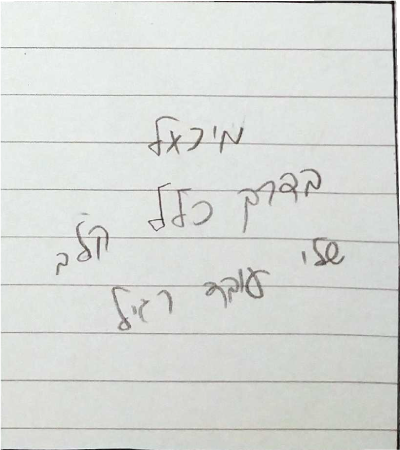 מיכאל
בדרך כלל הלב
שלי עובד רגיל